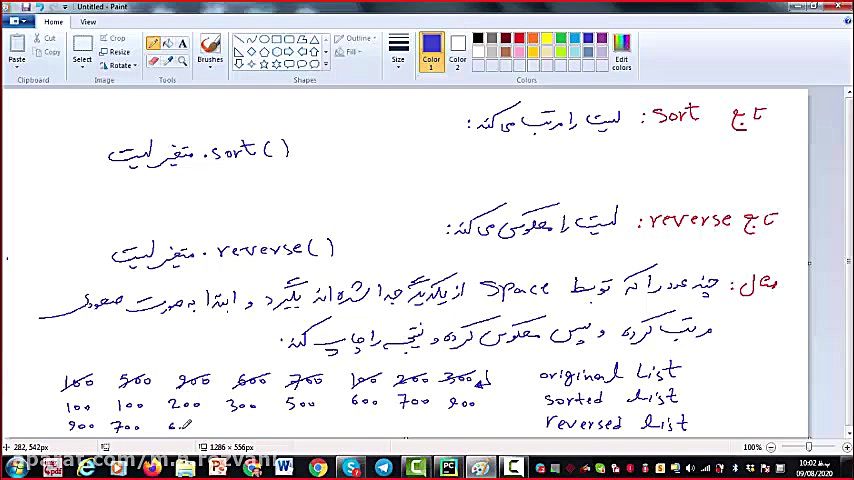 Untitled - Paint
Home View
Paste Cut Copy Clipboard
Select Crop Resize Rotate Image
Tools
Brushes
Shapes Outline Fill
Size
Color 1 Color 2 Colors
Edit colors
تابع sort : لیست را مرتب می کند :
متغیر لیست .sort()
تابع reverse : لیست را معکوس می کند :
متغیر لیست .reverse()
مثال : چند عدد را که توسط Space از یکدیگر جدا شده اند بگیرد و ابتدا به صورت صعودی
مرتب کرده و سپس معکوس کرده و نتیجه را چاپ کند.
100 500 900 600 700 100 200 300 original List
100 100 200 300 500 600 700 900 sorted list
900 700 6 reversed list
282, 542px 1286 × 556px 100%
aparat.com/m.a.rezvani
10:02 ب.ظ
09/08/2020